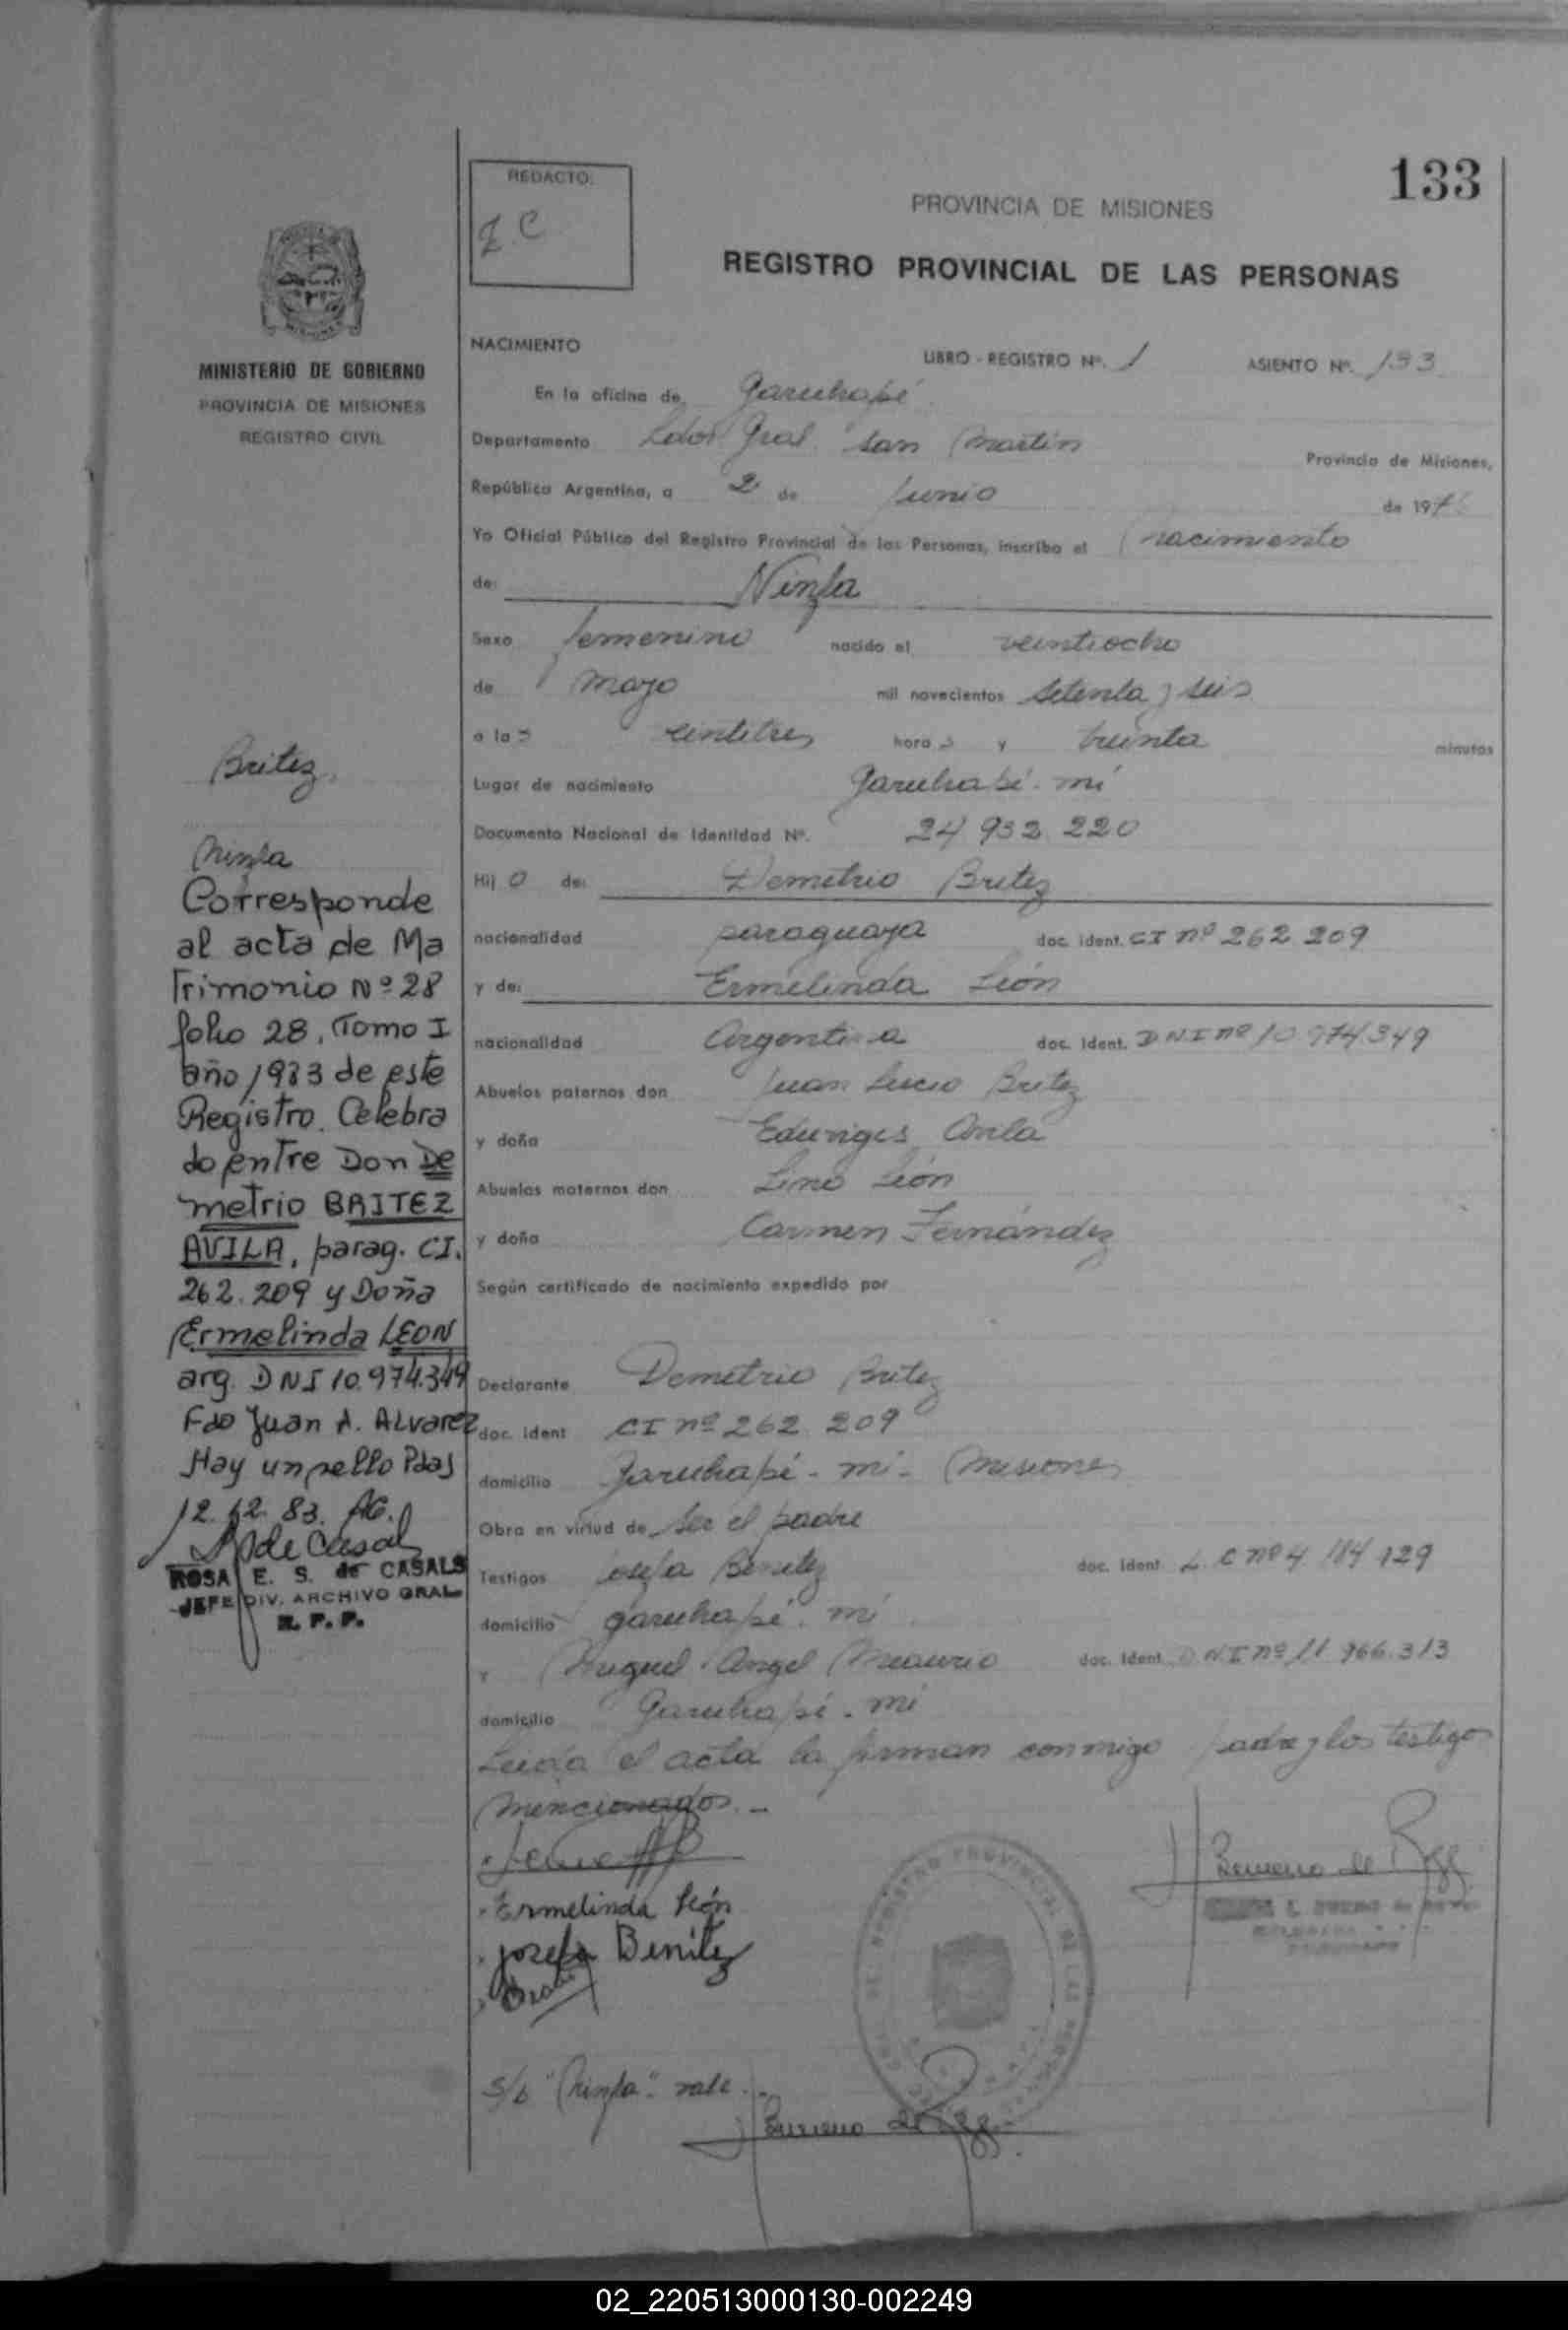 133
REDACTO:
PROVINCIA DE MISIONES
REGISTRO PROVINCIAL DE LAS PERSONAS
MINISTERIO DE GOBIERNO
PROVINCIA DE MISIONES
REGISTRO CIVIL
NACIMIENTO LIBRO - REGISTRO Nº. 1 ASIENTO Nº. 133
En la oficina de Garuhapé
Departamento Ldor Gral. San Martín Provincia de Misiones,
República Argentina, a 2 de Junio de 197
Yo Oficial Público del Registro Provincial de las Personas, inscribo el nacimiento
de: Ninfa
Sexo femenino nacido el veintiocho
de Mayo mil novecientos setenta y seis
a las veintitres horas y treinta minutos
Lugar de nacimiento Garuhapé. mi
Documento Nacional de Identidad Nº. 24 932 220
Hijo de: Demetrio Britez
nacionalidad paraguaya doc. ident. CI nº 262 209
y de: Ermelinda León
nacionalidad Argentina doc. ident. DNI nº 10 974 349
Abuelos paternos don Juan Lucio Britez
y doña Eduviges Avila
Abuelos maternos don Lino León
y doña Carmen Fernández
Según certificado de nacimiento expedido por
Declarante Demetrio Britez
doc. ident CI nº 262 209
domicilio Garuhapé - mi - Misiones
Obra en virtud de ser el padre
Testigos Josefa Benitez doc. ident L. C nº 4 184 129
domicilio Garuhapé. mi
y Miguel Angel doc. ident DNI nº 11 966.313
domicilio Garuhapé. mi
Leída el acta la firman conmigo padre y los testigos
mencionados. -
Ermelinda León
Josefa Benitez
s/b "Ninfa". vale.
Britez
Ninfa
Corresponde
al acta de Ma
trimonio Nº 28
folio 28, Tomo I
año 1983 de este
Registro. Celebra
do entre Don De
metrio BRITEZ
AVILA, parag. CI.
262.209 y Doña
Ermelinda LEON
arg. DNI 10.974.349
Fdo Juan A. Alvarez
Hay un sello Pdas
12.12.83. AG.
ROSA E. S. de CASALS
JEFE DIV. ARCHIVO GRAL
R. P. P.
02_220513000130-002249